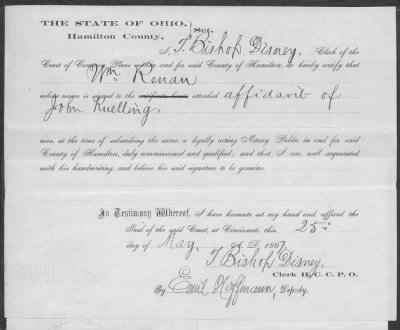 THE STATE OF OHIO,
Hamilton County, } Sct.
I, T. Bishop Disney, Clerk of the
Court of Common Pleas within and for said County of Hamilton, do hereby certify that
Wm Renau
whose name is signed to the attached affidavit of
John Kuelling.
was, at the time of subscribing the same, a legally acting Notary Public in and for said
County of Hamilton, duly commissioned and qualified; and that I am well acquainted
with his handwriting, and believe his said signature to be genuine.
In Testimony Whereof, I have hereunto set my hand and affixed the
Seal of the said Court, at Cincinnati, this 25
day of May, A. D. 1867.
T Bishop Disney,
Clerk H. C. C. P. O.
By Emil Hoffmann, Deputy.